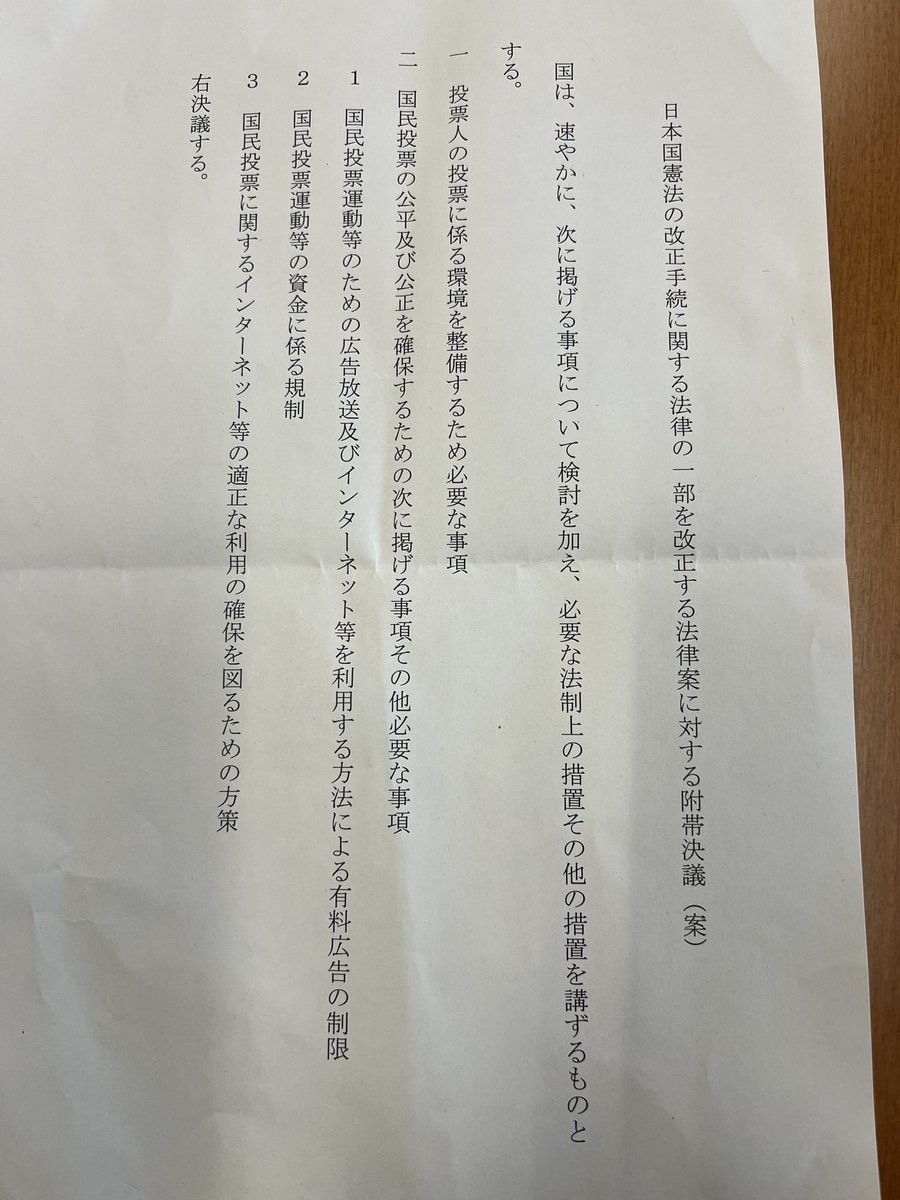 日本国憲法の改正手続に関する法律の一部を改正する法律案に対する附帯決議（案）
国は、速やかに、次に掲げる事項について検討を加え、必要な法制上の措置その他の措置を講ずるものと
する。
一　投票人の投票に係る環境を整備するため必要な事項
二　国民投票の公平及び公正を確保するための次に掲げる事項その他必要な事項
１　国民投票運動等のための広告放送及びインターネット等を利用する方法による有料広告の制限
２　国民投票運動等の資金に係る規制
３　国民投票に関するインターネット等の適正な利用の確保を図るための方策
右決議する。